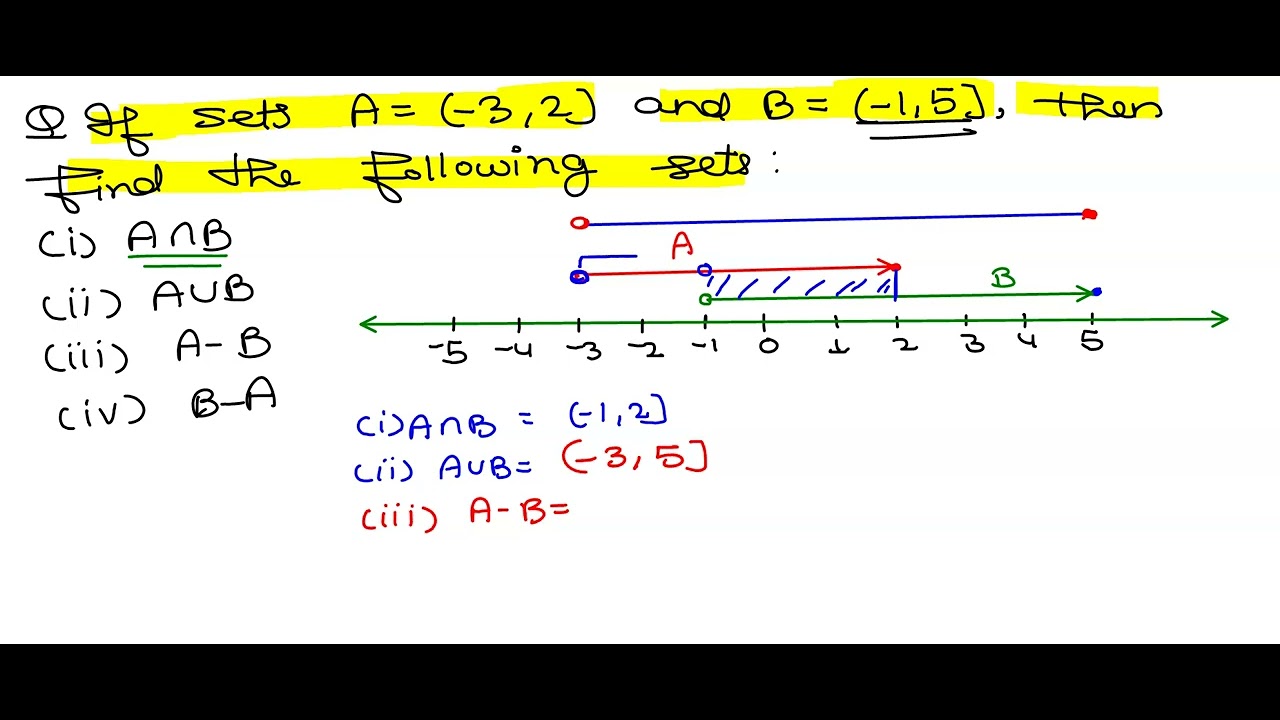 Q If sets A = (-3, 2] and B = (-1, 5], then
find the following sets:
(i) A∩B
(ii) A∪B
(iii) A-B
(iv) B-A
A
B
-5 -4 -3 -2 -1 0 1 2 3 4 5
(i) A∩B = (-1, 2]
(ii) A∪B = (-3, 5]
(iii) A-B=